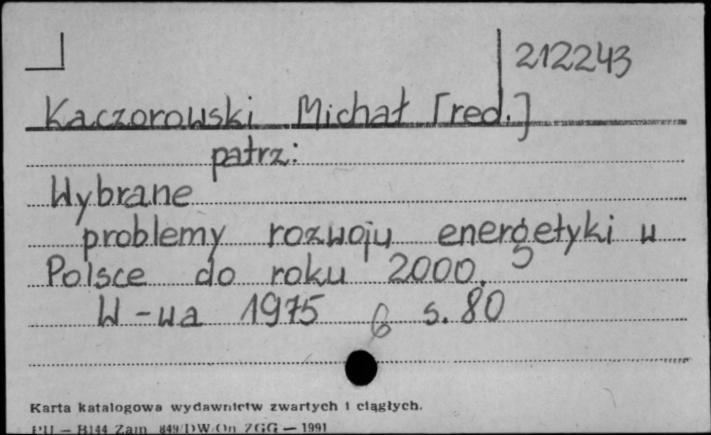 212243
Kaczorowski Michał [red.]
patrz:
Wybrane
problemy rozwoju energetyki w
Polsce do roku 2000.
W-wa 1975 6 s. 80
Karta katalogowa wydawnictw zwartych i ciągłych.
PU — B144 Zam. 849/DW/On ZGG — 1991